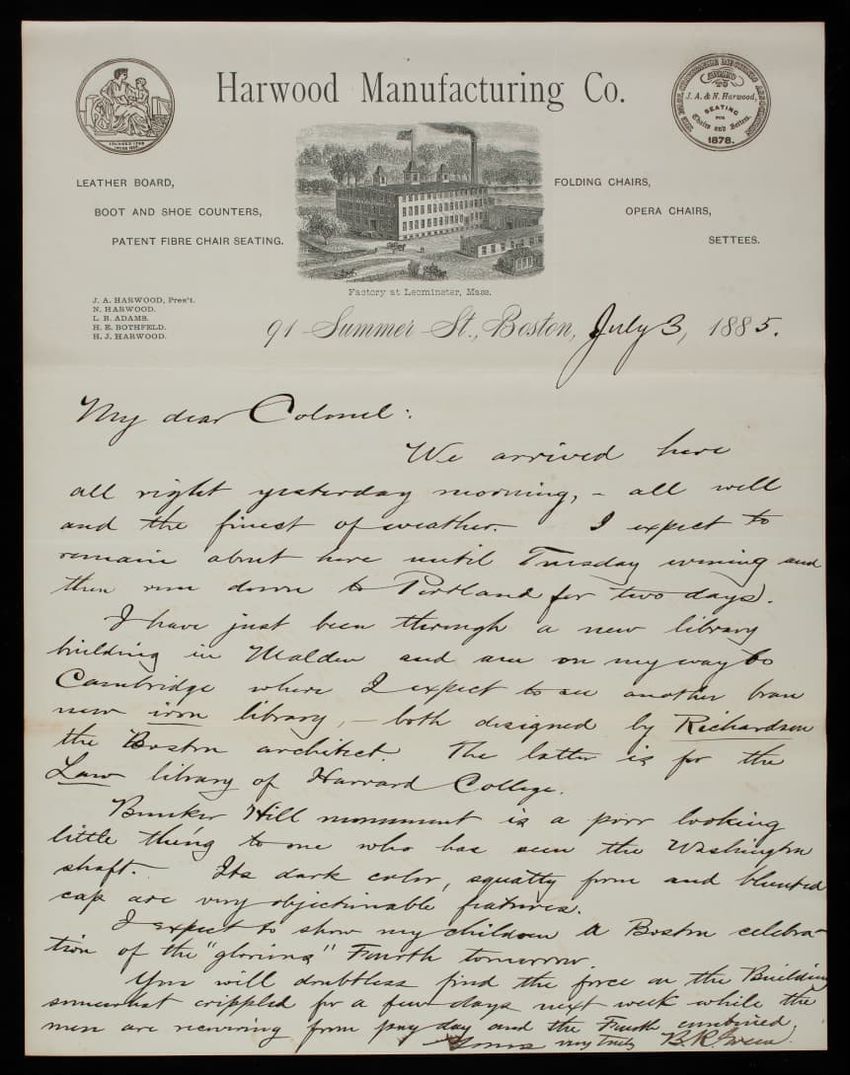 Harwood Manufacturing Co.
J. A. & N. Harwood,
SEATING
FOR
Chairs and Settees.
1878.
LEATHER BOARD,
BOOT AND SHOE COUNTERS,
PATENT FIBRE CHAIR SEATING.
FOLDING CHAIRS,
OPERA CHAIRS,
SETTEES.
Factory at Leominster, Mass.
J. A. HARWOOD, Pres't.
N. HARWOOD.
L. B. ADAMS.
H. E. BOTHFELD.
H. J. HARWOOD.
91 Summer St., Boston, July 3, 1885.
My dear Colonel:
We arrived here
all right yesterday morning, - all well
and the finest of weather. I expect to
remain about here until Tuesday evening and
then run down to Portland for two days.
I have just been through a new library
building in Malden and am on my way to
Cambridge where I expect to see another bran
new iron library, - both designed by Richardson
the Boston architect. The latter is for the
Law library of Harvard College.
Bunker Hill monument is a poor looking
little thing to one who has seen the Washington
shaft. Its dark color, squatty form and blunted
cap are very objectionable features.
I expect to show my children a Boston celebra-
tion of the "glorious" Fourth tomorrow.
You will doubtless find the force on the Building
somewhat crippled for a few days next week while the
men are recovering from pay day and the Fourth combined.
Yours very truly B. R. Green.